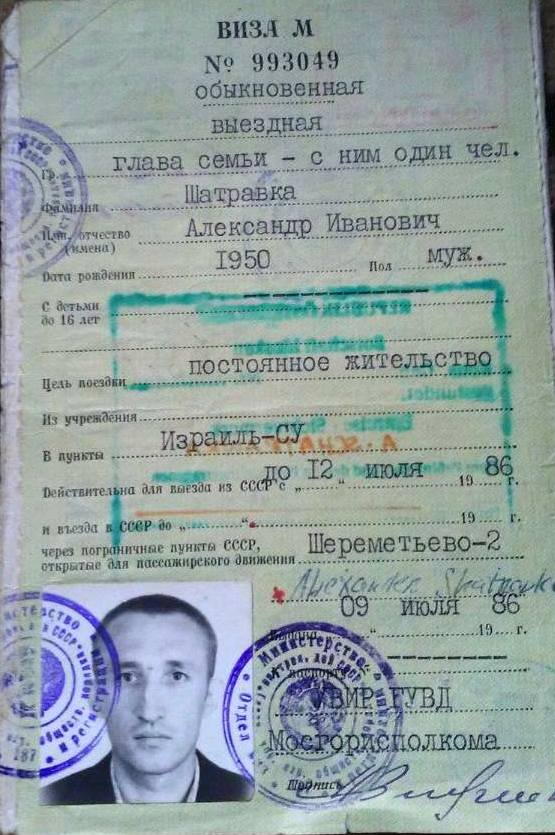 ВИЗА М
№ 993049
обыкновенная
выездная
Гр. глава семьи - с ним один чел.
Фамилия Шатравка
Имя, отчество Александр Иванович
(имена)
Дата рождения 1950 Пол муж.
С детьми
до 16 лет
Цель поездки постоянное жительство
Из учреждения
В пункты Израиль-СУ
A. SCHATRAVKA
Действительна для выезда из СССР с „ до 12 “ июля 19 86 г.
и въезда в СССР до „ “ 19 г.
через пограничные пункты СССР, Шереметьево-2
открытые для пассажирского движения
Alexander Shatravka
Выдана 09 “ июля 19 86 г.
УВИР ГУВД
Мосгорисполкома
Подпись
Министерство
Отдел виз и регистраций
187